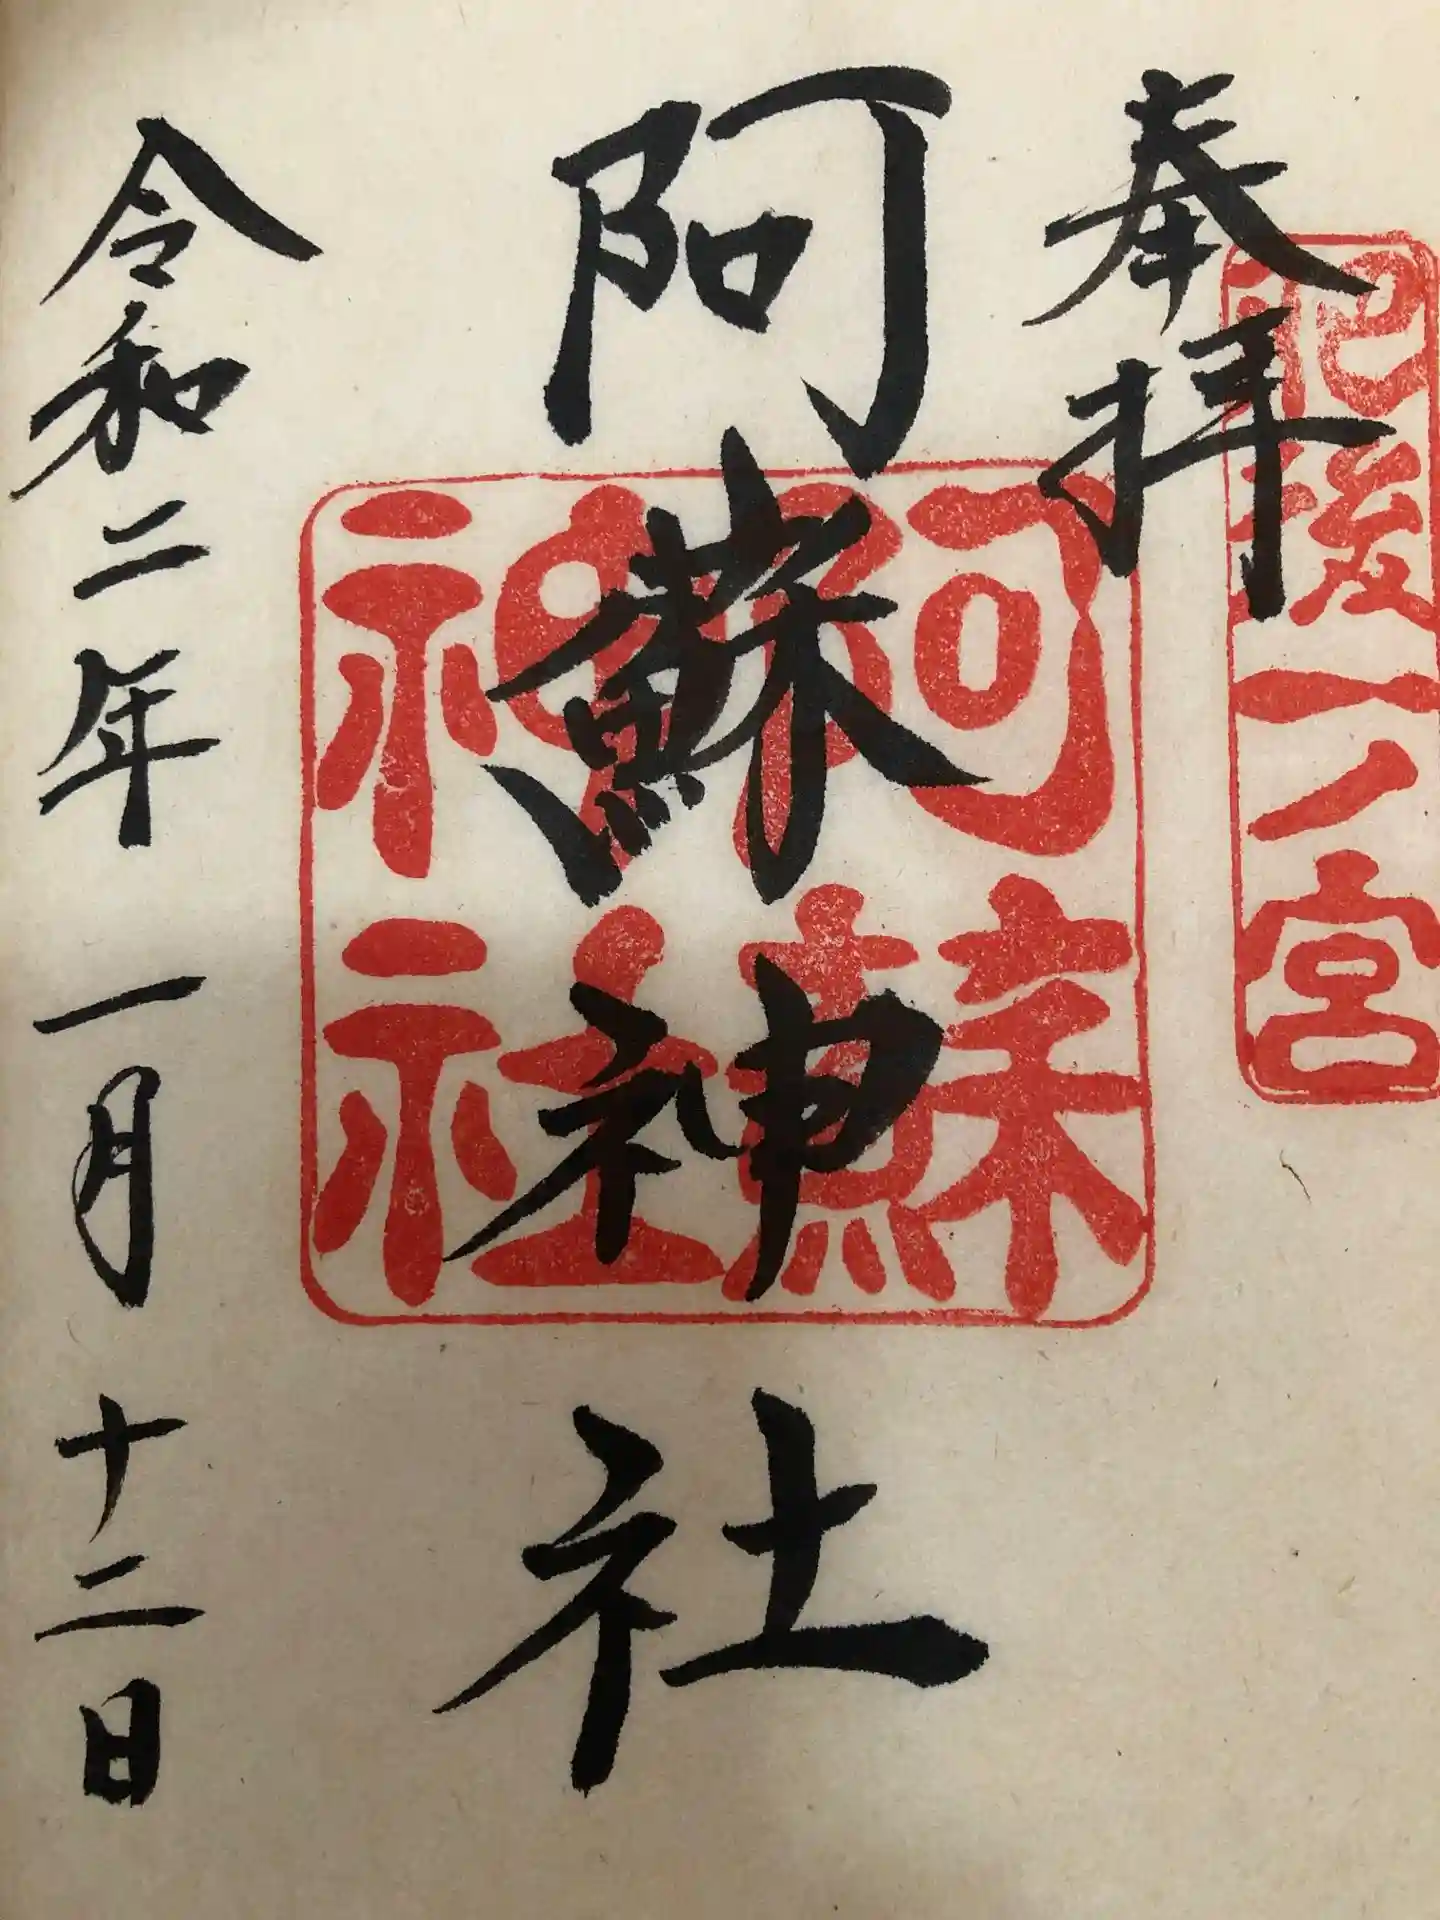 奉拝
肥後一ノ宮
阿蘇神社
阿蘇
神社
令和二年一月十二日